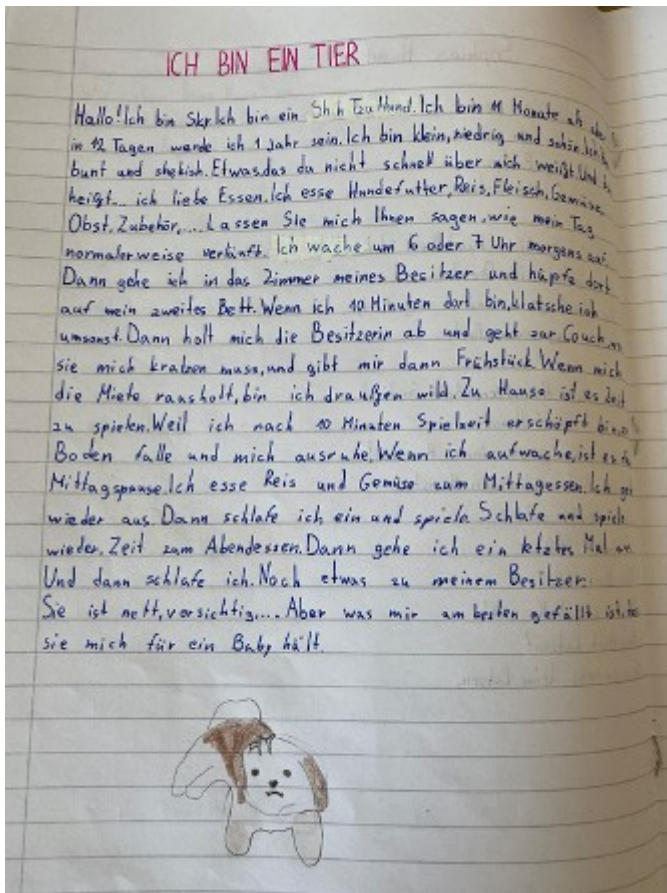 ICH BIN EIN TIER
Hallo! Ich bin Sky. Ich bin ein Shih Tzu Hund. Ich bin 11 Monate alt, aber
in 12 Tagen werde ich 1 Jahr sein. Ich bin klein, niedrig und schön.
bunt und shekish. Etwas, das du nicht schnell über mich weißt. Und
heißt... ich liebe Essen. Ich esse Hundefutter, Reis, Fleisch, Gemüse,
Obst, Zubehör,.... Lassen Sie mich Ihnen sagen, wie mein Tag
normalerweise verläuft. Ich wache um 6 oder 7 Uhr morgens auf.
Dann gehe ich in das Zimmer meines Besitzer und hüpfe dort
auf mein zweites Bett. Wenn ich 10 Minuten dort bin, klatsche ich
umsonst. Dann holt mich die Besitzerin ab und geht zur Couch,
sie mich kratzen muss, und gibt mir dann Frühstück. Wenn mich
die Miete rausholt, bin ich draußen wild. Zu Hause ist es Zeit
zu spielen. Weil ich nach 10 Minuten Spielzeit erschöpft bin,
Boden falle und mich ausruhe. Wenn ich aufwache, ist es
Mittagspause. Ich esse Reis und Gemüse zum Mittagessen. Ich
wieder aus. Dann schlafe ich ein und spiele. Schlafe und spiele
wieder. Zeit zum Abendessen. Dann gehe ich ein letztes Mal
Und dann schlafe ich. Noch etwas zu meinem Besitzer:
Sie ist nett, versichtig.... Aber was mir am besten gefällt ist,
sie mich für ein Baby hält.